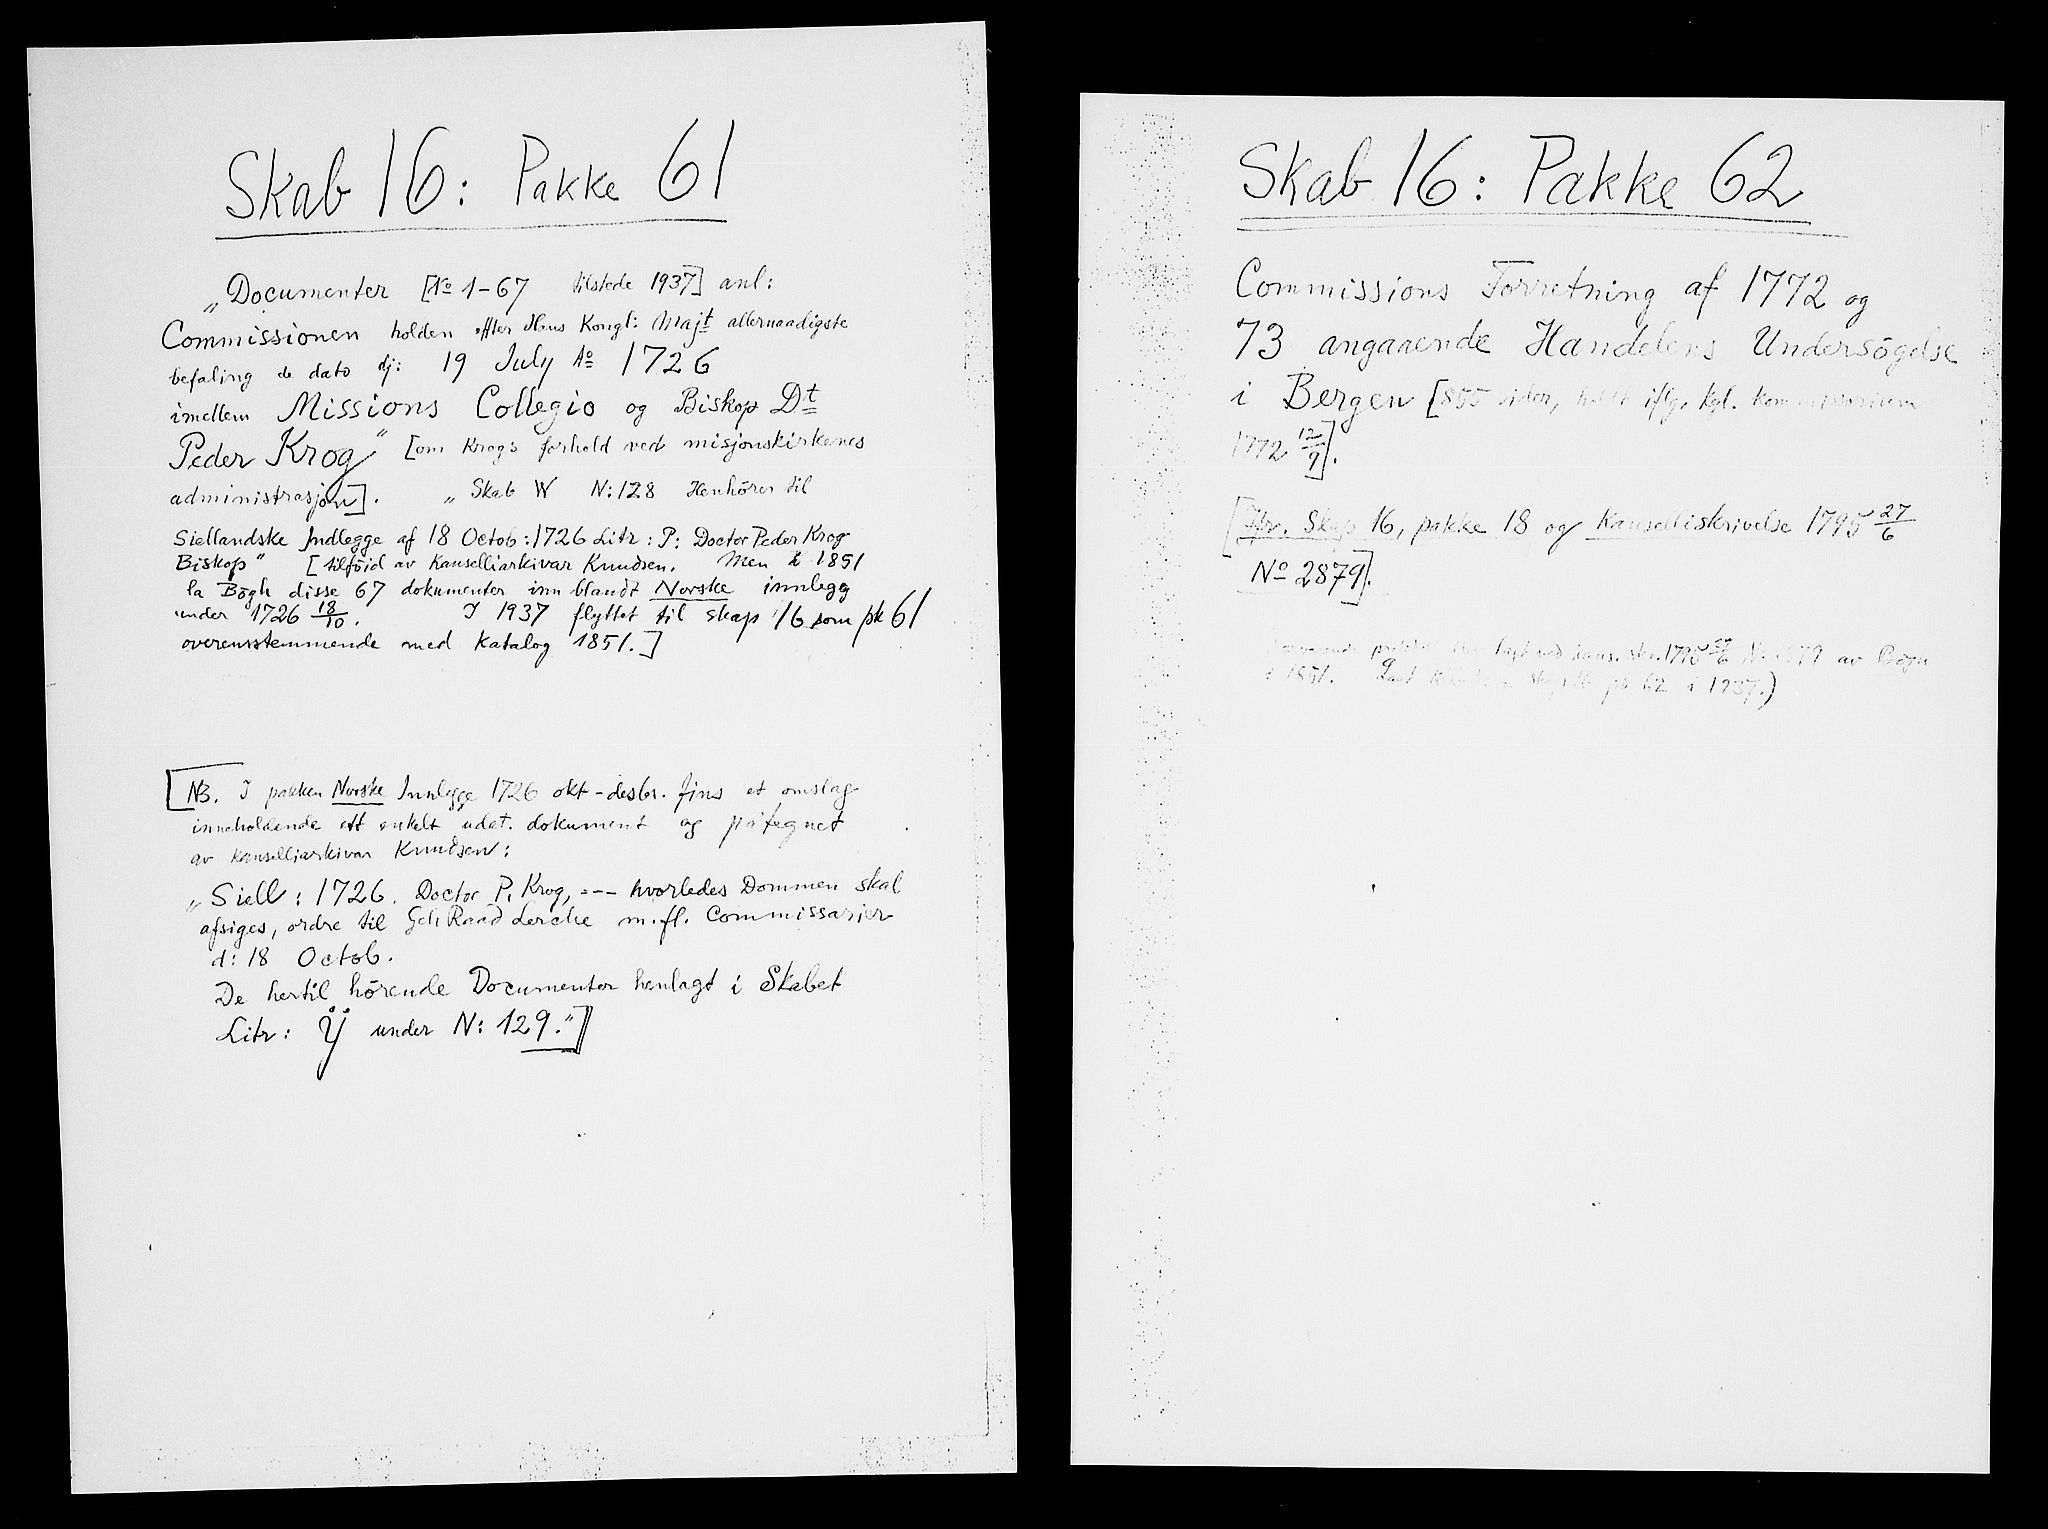 Skab 16: Pakke 61
„Documenter [No 1-67 tilstede 1937] anl:
Commissionen holden efter Hans Kongl: Majt allernaadigste
befaling de dato dj: 19 July Ao 1726
imellem Missions Collegio og Biskop Dt
Peder Krog" [om Krogs forhold ved misjonskirkenes
administrasjon]. „Skab W N: 128 Henhörer til
Siellandske Indlegge af 18 Octob: 1726 Litr: P: Doctor Peder Krog
Biskop" [tilföid av Kanselliarkivar Knudsen. Men 1851
la Bögh disse 67 dokumenter inn blandt Norske innlegg
under 1726 18/10. I 1937 flyttet til skap 16 som pk 61
overensstemmende med katalog 1851.]
[NB. I pakken Norske Innlegge 1726 okt-desbr. fins et omslag
inneholdende ett enkelt udat. dokument og påtegnet
av kanselliarkivar Knudsen:
„Siell: 1726. Doctor P. Krog, --- hvorledes Dommen skal
afsiges, ordre til Geh Raad Lerche m.fl. Commissarier
d: 18 Octob.
De hertil hörende Documenter henlagt i Skabet
Litr: Ÿ under N: 129."]
Skab 16: Pakke 62
Commissions Forretning af 1772 og
73 angaaende Handelens Undersögelse
i Bergen [855 sider, holdt iflg. kgl. kommissorium
1772 12/9].
[Jfr. Skap 16, pakke 18 og Kanselliskrivelse 1795 27/6
No 2879].
pakke lagt ved kans. skr. 1795 27/6 No 2879 av Bögh
i 1851. skap 16 pk 62 i 1937.)